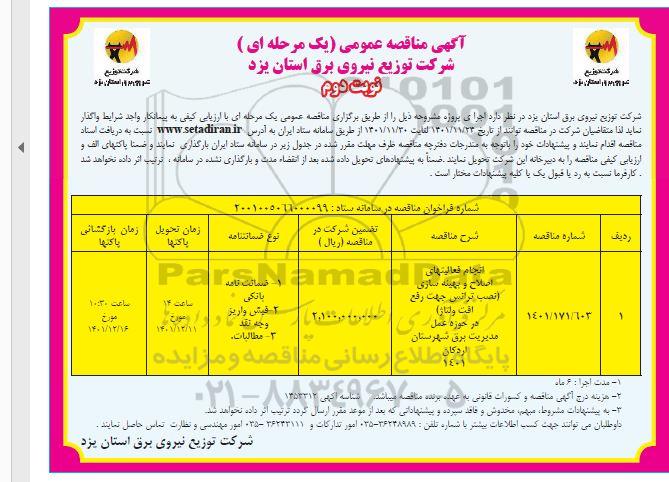 آگهی مناقصه عمومی (یک مرحله ای )
شرکت توزیع نیروی برق استان یزد
نوبت دوم
شرکت توزیع
نیروی برق استان یزد
شرکت توزیع
نیروی برق استان یزد
شرکت توزیع نیروی برق استان یزد در نظر دارد اجرا ی پروژه مشروحه ذیل را از طریق برگزاری مناقصه عمومی یک مرحله ای با ارزیابی کیفی به پیمانکار واجد شرایط واگذار
نماید لذا متقاضیان شرکت در مناقصه توانند از تاریخ ۱۴۰۱/۱۱/۲۴ لغایت ۱۴۰۱/۱۱/۳۰ از طریق سامانه ستاد ایران به آدرس www.setadiran.ir نسبت به دریافت اسناد
مناقصه اقدام نمایند و پیشنهادات خود را باتوجه به مندرجات دفترچه مناقصه ظرف مهلت مقرر شده در جدول زیر در سامانه ستاد ایران بارگذاری نمایند و ضمنا پاکتهای الف و
ارزیابی کیفی مناقصه را به دبیرخانه این شرکت تحویل نمایند .ضمناً به پیشنهادهای تحویل داده شده بعد از انقضاء مدت و بارگذاری نشده در سامانه ، ترتیب اثر داده نخواهد شد
. کارفرما نسبت به رد یا قبول یک یا کلیه پیشنهادات مختار است .
شماره فراخوان مناقصه در سامانه ستاد : ۲۰۰۱۰۰۵۰۶۶۰۰۰۰۹۹
ردیف
شماره مناقصه
شرح مناقصه
تضمین شرکت در مناقصه (ریال )
نوع ضمانتنامه
زمان تحویل پاکتها
زمان بازگشائی پاکتها
۱
۱۴۰۱/۱۷۱/۶۰۳
انجام فعالیتهای
اصلاح و بهینه سازی
(نصب ترانس جهت رفع
افت ولتاژ)
در حوزه عمل
مدیریت برق شهرستان
اردکان
۱۴۰۱
۲,۱۰۰,۰۰۰,۰۰۰
۱- ضمانت نامه
بانکی
۲-فیش واریز
وجه نقد
۳- مطالبات.
ساعت ۱۴
مورخ
۱۴۰۱/۱۲/۱۱
ساعت ۱۰:۳۰
مورخ
۱۴۰۱/۱۲/۱۶
۱- مدت اجرا : ۶ ماه
۲- هزینه درج آگهی مناقصه و کسورات قانونی به عهده برنده مناقصه میباشد. شناسه آگهی ۱۴۵۳۳۱۲
۳- به پیشنهادات مشروط، مبهم، مخدوش و فاقد سپرده و پیشنهاداتی که بعد از موعد مقرر ارسال گردد ترتیب اثر داده نخواهد شد.
داوطلبان می توانند جهت کسب اطلاعات بیشتر با شماره تلفن : ۳۶۲۴۸۹۸۹-۰۳۵ امور تدارکات و ۳۶۲۴۳۱۱۱ -۰۳۵ امور مهندسی و نظارت تماس حاصل نمایند .
شرکت توزیع نیروی برق استان یزد
ParsNamadData
پایگاه اطلاع رسانی مناقصه و مزایده
۰۲۱-۸۸۳۴۹۶۷۰-۵